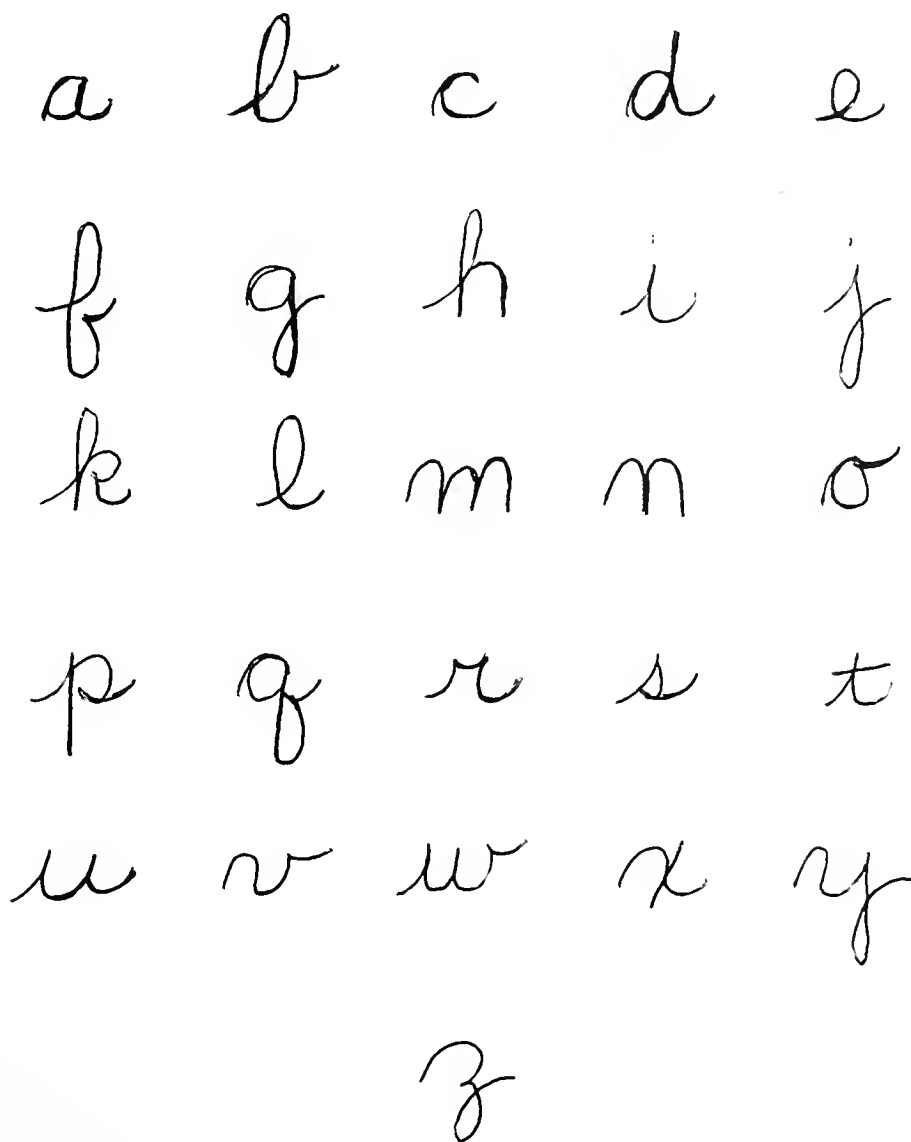 a b c d e
f g h i j
k l m n o
p q r s t
u v w x y
z